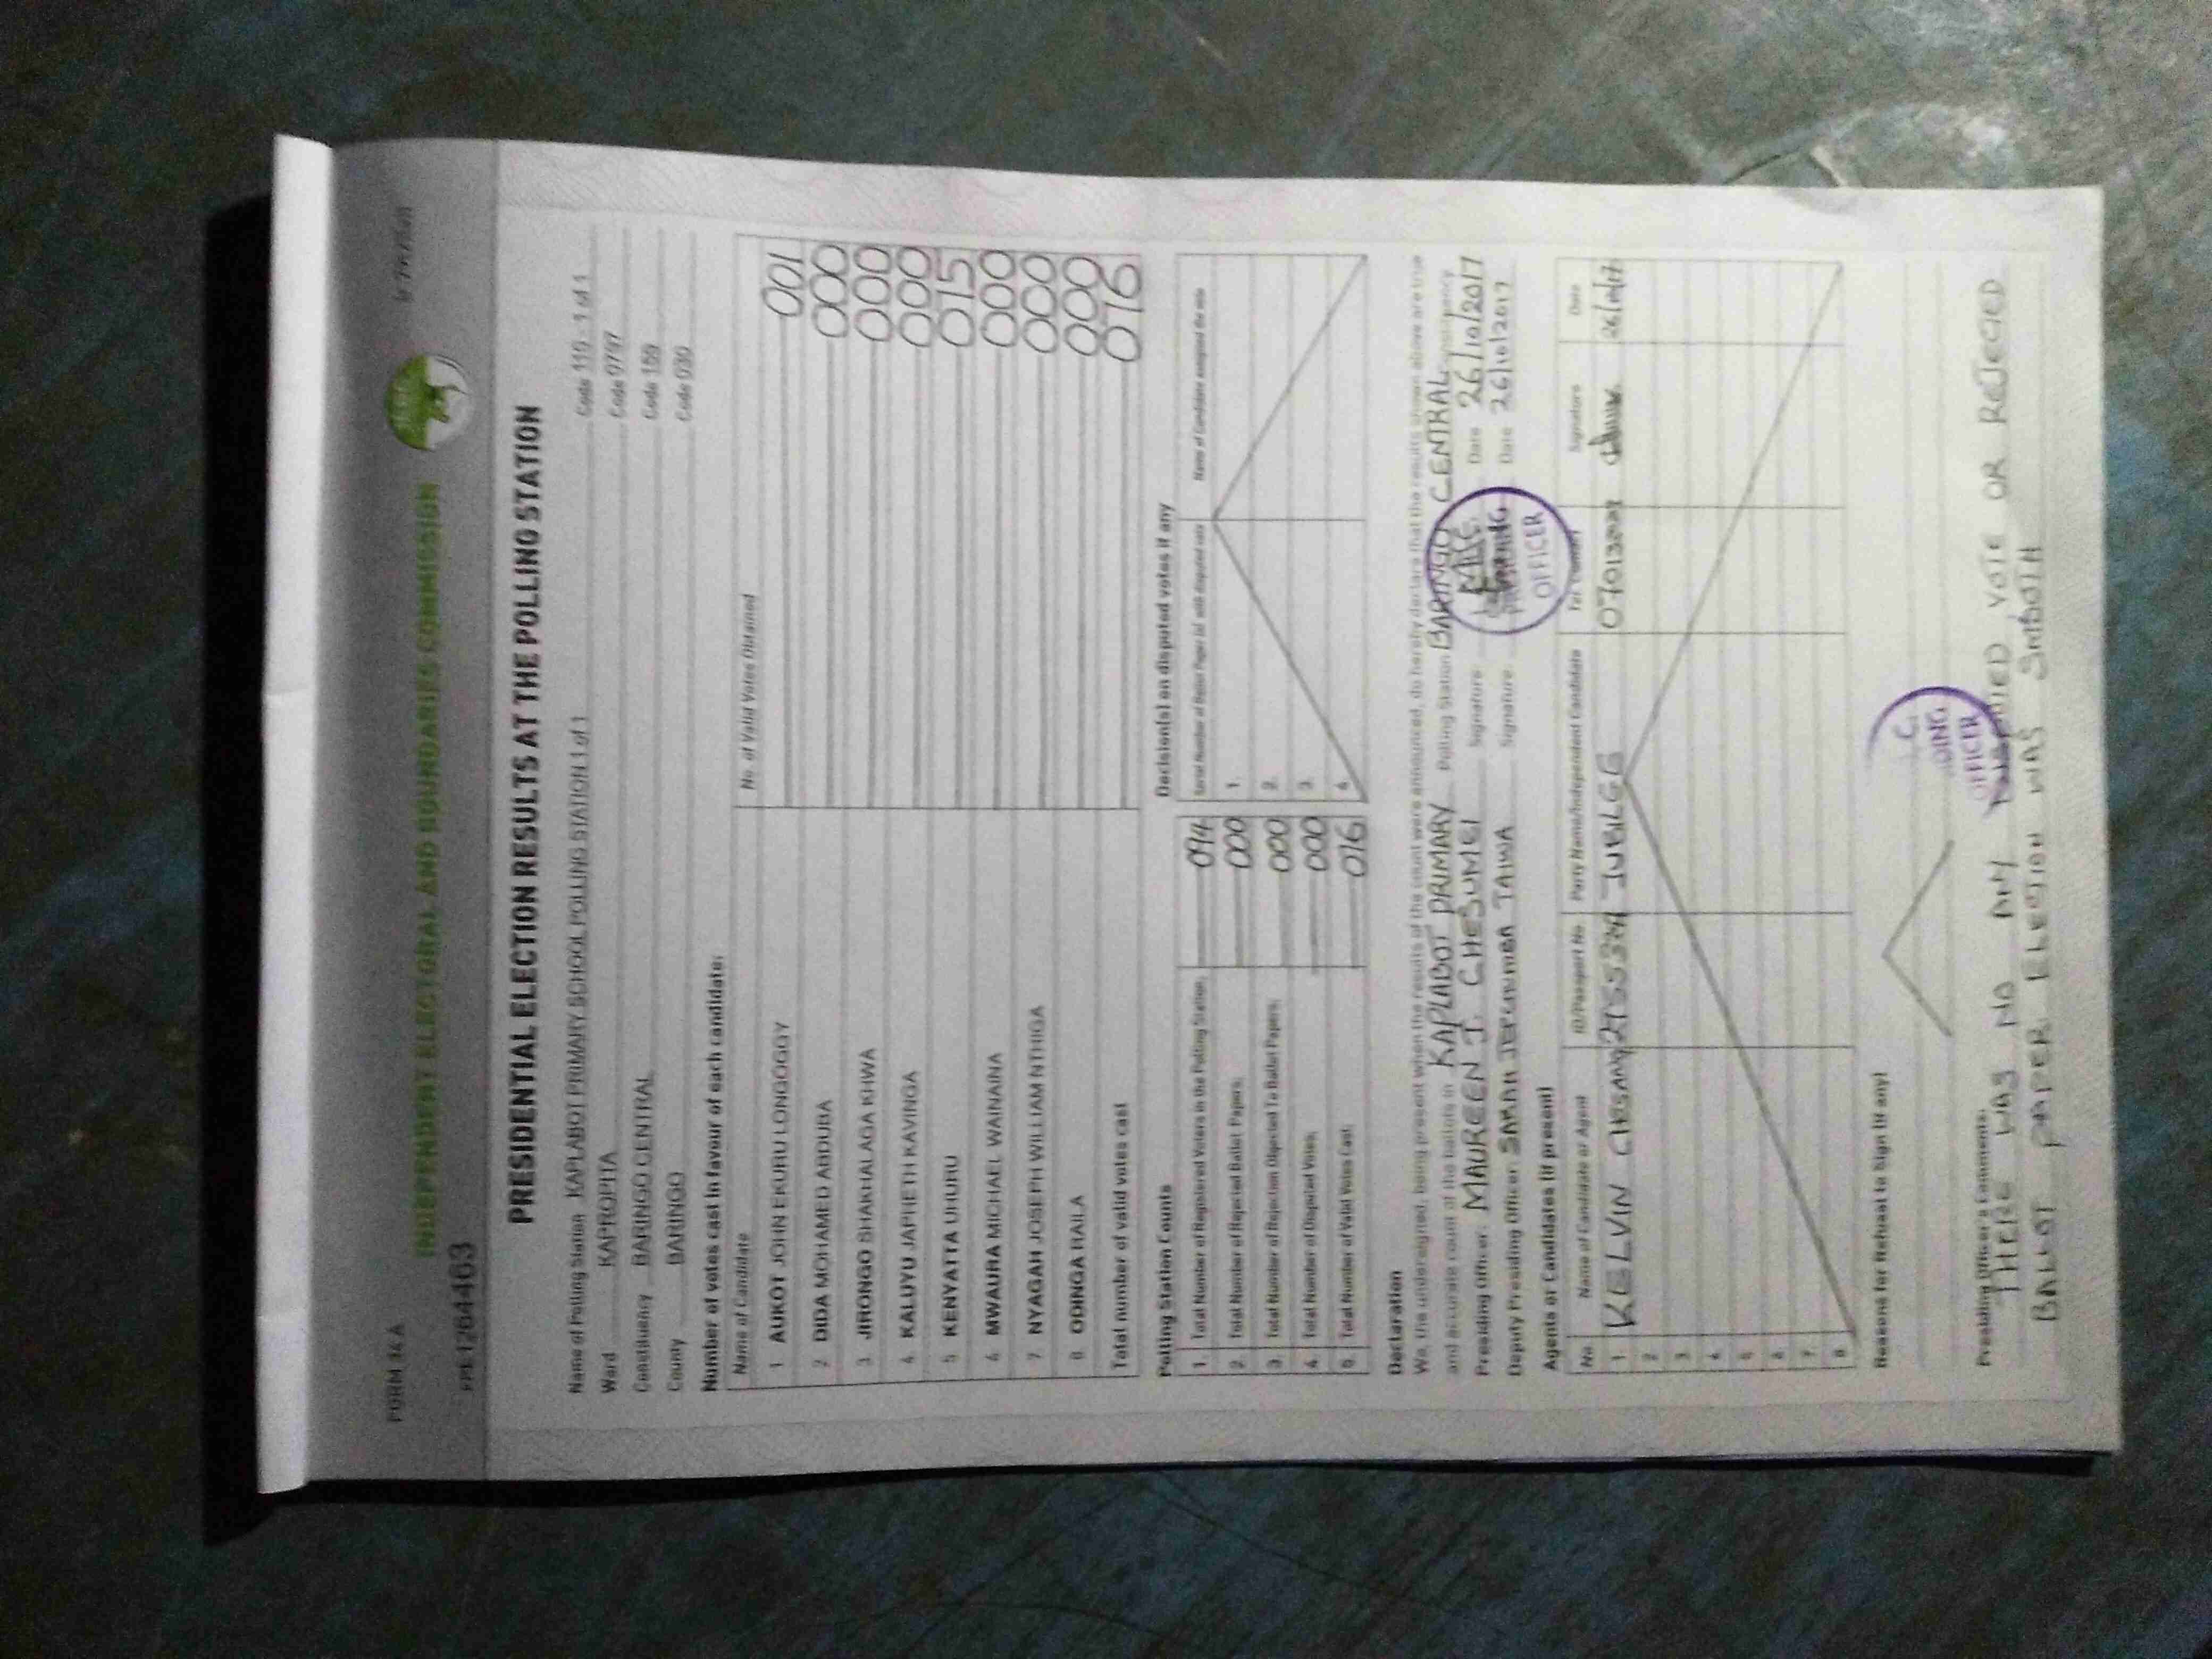 FORM 34A
INDEPENDENT ELECTORAL AND BOUNDARIES COMMISSION
PRESIDENTIAL ELECTION RESULTS AT THE POLLING STATION
Name of Polling Station KAPLABOT PRIMARY SCHOOL POLLING STATION 1 of 1 Code 110 - 1 of 1
Ward KAPROPITA Code 0797
Constituency BARINGO CENTRAL Code 159
County BARINGO Code 030
Number of votes cast in favour of each candidate:
Name of Candidate No. of Valid Votes Obtained
1 AUKOT JOHN EKURU LONGOGGY 001
2 DIDA MOHAMED ABDUBA 000
3 JIRONGO SHAKHALAGA KHWA 000
4 KALUYU JAPHETH KAVINGA 000
5 KENYATTA UHURU 015
6 MWAURA MICHAEL WAINAINA 000
7 NYAGAH JOSEPH WILLIAM NTHIGA 000
8 ODINGA RAILA 000
Total number of valid votes cast 016
Polling Station Counts
1. Total Number of Registered Voters in the Polling Station 094
2. Total Number of Rejected Ballot Papers 000
3. Total Number of Rejection Objected To Ballot Papers 000
4. Total Number of Disputed Votes 000
5. Total Number of Valid Votes Cast 016
Decision(s) on disputed votes if any
1.
2.
3.
4.
Declaration
We, the undersigned, being present when the results of the count were announced, do hereby declare that the results shown above are true
and accurate count of the ballots in KAPLABOT PRIMARY Polling Station BARINGO CENTRAL Constituency
Presiding Officer MAUREEN J. CHESUMEI Signature Date 26/10/2017
Deputy Presiding Officer SARAH Signature Date 26/10/2017
OFFICER
Agents or Candidates (if present)
No Name of Candidate or Agent ID/Passport No Party Name/Independent Candidate Signature Date
1 KELVIN JUBILEE 26/10/17
2
3
4
5
6
7
8
Reasons for Refusal to Sign (if any)
OFFICER
Presiding Officer's Comments:
THERE WAS NO ANY VOTE OR REJECTED
BALLOT PAPER ELECTION WAS SMOOTH